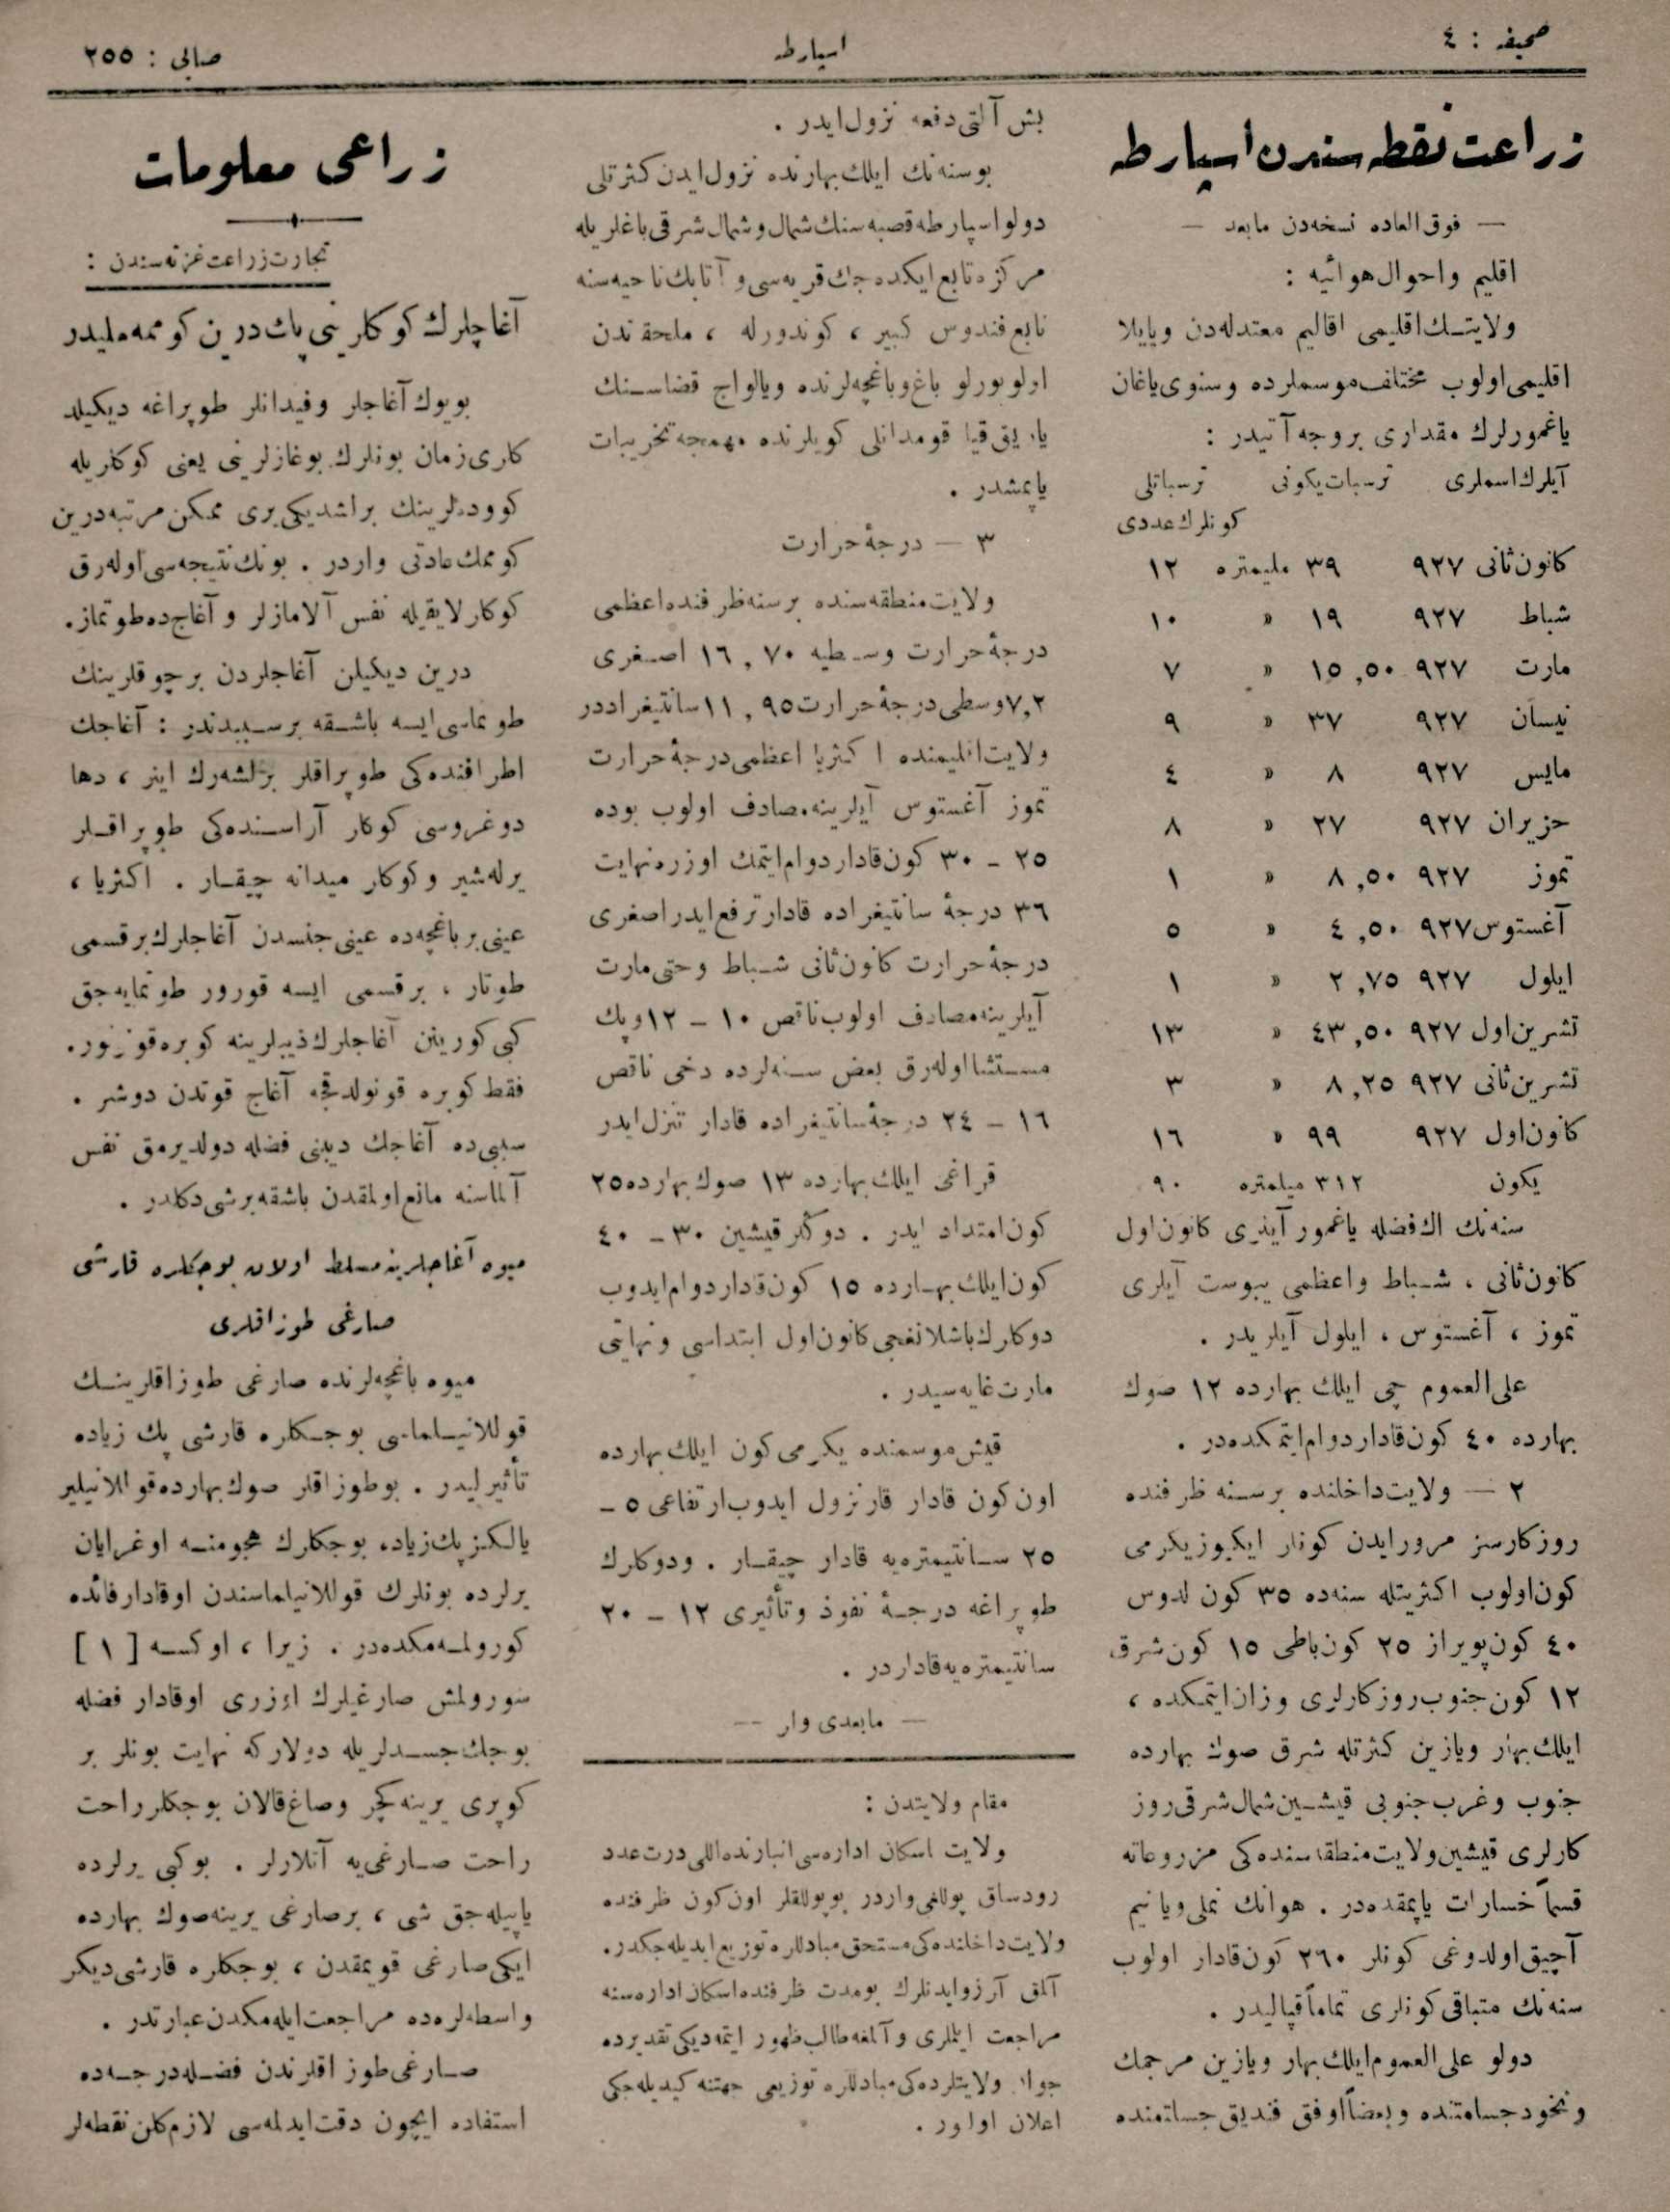 صحیفه : ٤
اسپارطه
صالی : ٢٥٥
زراعت نقطه سندن اسپارطه
— فوق العاده نسخه‌دن مابعد —
اقلیم واحوال هوائیه :
ولایتـك اقلیمی اقالیم معتدله‌دن ویایلا
اقلیمی اولوب مختلف موسملرده وسنوی یاغان
یاغمورلرك مقداری بروجه آتیدر :
آیلرك اسملری ترسبات یكونی ترسباتلی
كونلرك عددی
كانون ثانی ٩٢٧ ٣٩ ملیمتره ١٢
شباط ٩٢٧ ١٩ » ١٠
مارت ٩٢٧ ١٥,٥٠ » ٧
نیسان ٩٢٧ ٣٧ » ٩
مایس ٩٢٧ ٨ » ٤
حزیران ٩٢٧ ٢٧ » ٨
تموز ٩٢٧ ٨,٥٠ » ١
آغستوس ٩٢٧ ٤,٥٠ » ٥
ایلول ٩٢٧ ٢,٧٥ » ١
تشرین اول ٩٢٧ ٤٣,٥٠ » ١٣
تشرین ثانی ٩٢٧ ٨,٢٥ » ٣
كانون اول ٩٢٧ ٩٩ » ١٦
یكون ٣١٢ میلمتره ٩٠
سنه‌نك اك فضله یاغمور آیلری كانون اول
كانون ثانی ، شـباط واعظمی یبوست آیلری
تموز ، آغستوس ، ایلول آیلریدر .
علی العموم چی ایلك بهارده ١٢ صوك
بهارده ٤٠ كون قادار دوام ایتمكده‌در .
٢ — ولایت داخلنده برسـنه ظرفنده
روزكارسز مرور ایدن كونلر ایكیوزیكرمی
كون اولوب اكثریتله سنه‌ده ٣٥ كون لدوس
٤٠ كون پویراز ٢٥ كون باطی ١٥ كون شرق
١٢ كون جنوب روزكارلری وزان ایتمكده ،
ایلك بهار ویازین كثرتله شرق صوك بهارده
جنوب وغرب جنوبی قیشـین شمال شرقی روز
كارلری قیشین ولایت منطقه‌سنده‌كی مزروعاته
قسماً خسارات یاپمقده‌در . هوانك نملی ویا نیم
آچیق اولدوغی كونلر ٢٦٠ كون قادار اولوب
سنه‌نك متباقی كونلری تماماً قپالیدر .
دولو علی العموم ایلك بهار ویازین مرجمك
ونخود جسامتنده وبعضاً اوفق فندیق جسامتنده
بش آلتی دفعه نزول ایدر .
بوسنه‌نك ایلك بهارنده نزول ایدن كثرتلی
دولو اسپارطه قصبه‌سنك شمال وشمال شرقی باغلریله
مركزه تابع ایكده‌جك قریه‌سی و آتابك ناحیه‌سنه
تابع فندوس كبیر ، كوندورله ، ملحقاتدن
اولوبورلو باغ وباغچه‌لرنده ویالواج قضاسـنك
یاریق قیا قومدانلی كویلرنده مهمجه تخریبات
یاپمشدر .
٣ — درجهٔ حرارت
ولایت منطقه‌سنده برسنه ظرفنده اعظمی
درجهٔ حرارت وسـطیه ١٦,٧٠ اصـغری
٧,٢ وسطی درجهٔ حرارت ١١,٩٥ سانتیغراددر
ولایت اقلیمنده اكثریا اعظمی درجهٔ حرارت
تموز آغستوس آیلرینه مصادف اولوب بوده
٢٥ - ٣٠ كون قادار دوام ایتمك اوزره نهایت
٣٦ درجهٔ سانتیغراده قادار ترفع ایدر اصغری
درجهٔ حرارت كانون ثانی شـباط وحتی مارت
آیلرینه مصادف اولوب ناقص ١٠ - ١٢ وپك
مسـتثنا اوله‌رق بعض سـنه‌لرده دخی ناقص
١٦ - ٢٤ درجهٔ سانتیغراده قادار تنزل ایدر
قراغی ایلك بهارده ١٣ صوك بهارده ٢٥
كون امتداد ایدر . دوكلر قیشین ٣٠ - ٤٠
كون ایلك بهـارده ١٥ كون قدار دوام ایدوب
دوكلرك باشلانغجی كانون اول ابتداسی ونهایتی
مارت غایه‌سیدر .
قیش موسمنده یكرمی كون ایلك بهارده
اون كون قادار قار نزول ایدوب ارتفاعی ٥ -
٢٥ سـانتیمتره‌یه قادار چیقـار . ودوكلرك
طوپراغه درجـهٔ نفوذ وتأثیری ١٢ - ٢٠
سانتیمتره‌یه قاداردر .
— مابعدی وار —
مقام ولایتدن :
ولایت اسكان اداره‌سی انبارنده اللی درت عدد
رودساق پوللغی واردر بوپوللقلر اون كون ظرفنده
ولایت داخلنده‌كی مستحق مبادللره توزیع ایدیله‌جكدر.
آلمق آرزو ایدنلرك بومدت ظرفنده اسكان اداره‌سنه
مراجعت ایتملری و آلمغه طالب ظهور ایتمه‌دیكی تقدیرده
جوار ولایتلرده‌كی مبادللره توزیعی جهتنه كیدیله‌جكی
اعلان اولور .
زراعی معلومات
تجارت زراعت غزته‌سندن :
آغاچلرك كوكلرینی پك درین كوممه‌ملیدر
بویوك آغاجلر وفیدانلر طوپراغه دیكیلد
كلری زمان بونلرك بوغازلرینی یعنی كوكلریله
كووده‌لرینك براشدیكی یری ممكن مرتبه درین
كوممك عادتی واردر . بونك نتیجه‌سی اوله‌رق
كوكلر لایقیله نفس آلامازلر و آغاج ده طوتماز.
درین دیكیلن آغاجلردن برچوقلرینك
طوتماسی ایسه باشـقه برسـببدندر : آغاجك
اطرافنده‌كی طوپراقلر یرلشه‌رك اینر ، دها
دوغروسی كوكلر آراسـنده‌كی طوپراقـلر
یرله‌شیر وكوكلر میدانه چیقـار . اكثریا ،
عینی برباغچه‌ده عینی جنسدن آغاجلرك برقسمی
طوتار ، برقسمی ایسه قورور طوتمایه‌جق
كبی كورینن آغاجلرك دیبلرینه كوبره قونور.
فقط كوبره قونولدقجه آغاج قوتدن دوشر .
سببی ده آغاجك دیبنی فضله دولدیرمق نفس
آلماسنه مانع اولمقدن باشقه برشی دكلدر .
میوه آغاجلرینه مسلط اولان بوجكلره قارشی
صارغی طوزاقلری
میوه باغچه‌لرنده صارغی طوزاقلرینـك
قوللانیـلماسی بوجـكلره قارشی پك زیاده
تأثیرلیدر . بوطوزاقلر صوك بهارده قوللانیلیر
یالكز پك زیاده بوجكلرك هجومنـه اوغرایان
یرلرده بونلرك قوللانیلماسندن اوقادار فائده
كورولمه‌مكده‌در . زیرا ، اوكسه [ ١ ]
سورولمش صارغیلرك اوزری اوقادار فضله
بوجك جسـدلریله دولاركه نهایت بونلر بر
كوپری یرینه كچر وصاغ قالان بوجكلر راحت
راحت صـارغی‌یه آتلارلر . بوكبی یرلرده
یاپیله‌جق شی ، برصارغی یرینه صوك بهارده
ایكی صارغی قویمقدن ، بوجكلره قارشی دیكر
واسطه‌لره‌ده مراجعت ایله‌مكدن عبارتدر .
صـارغی طوزاقلرندن فضـله درجـه‌ده
استفاده ایچون دقت ایدلمه‌سی لازم كلن نقطه‌لر